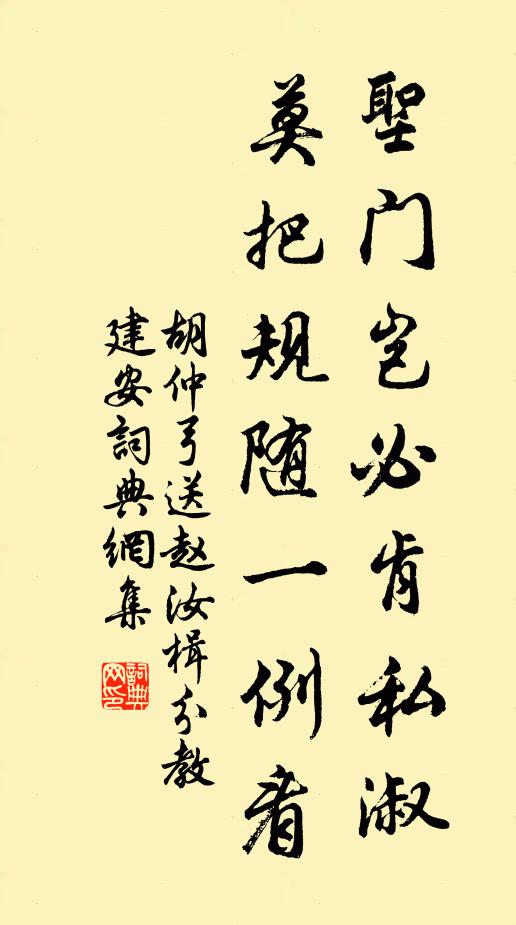 聖门岂必肯私淑
莫把规随一例看
胡仲弓送赵汝楫分教
建安詞典網集
詞典网印